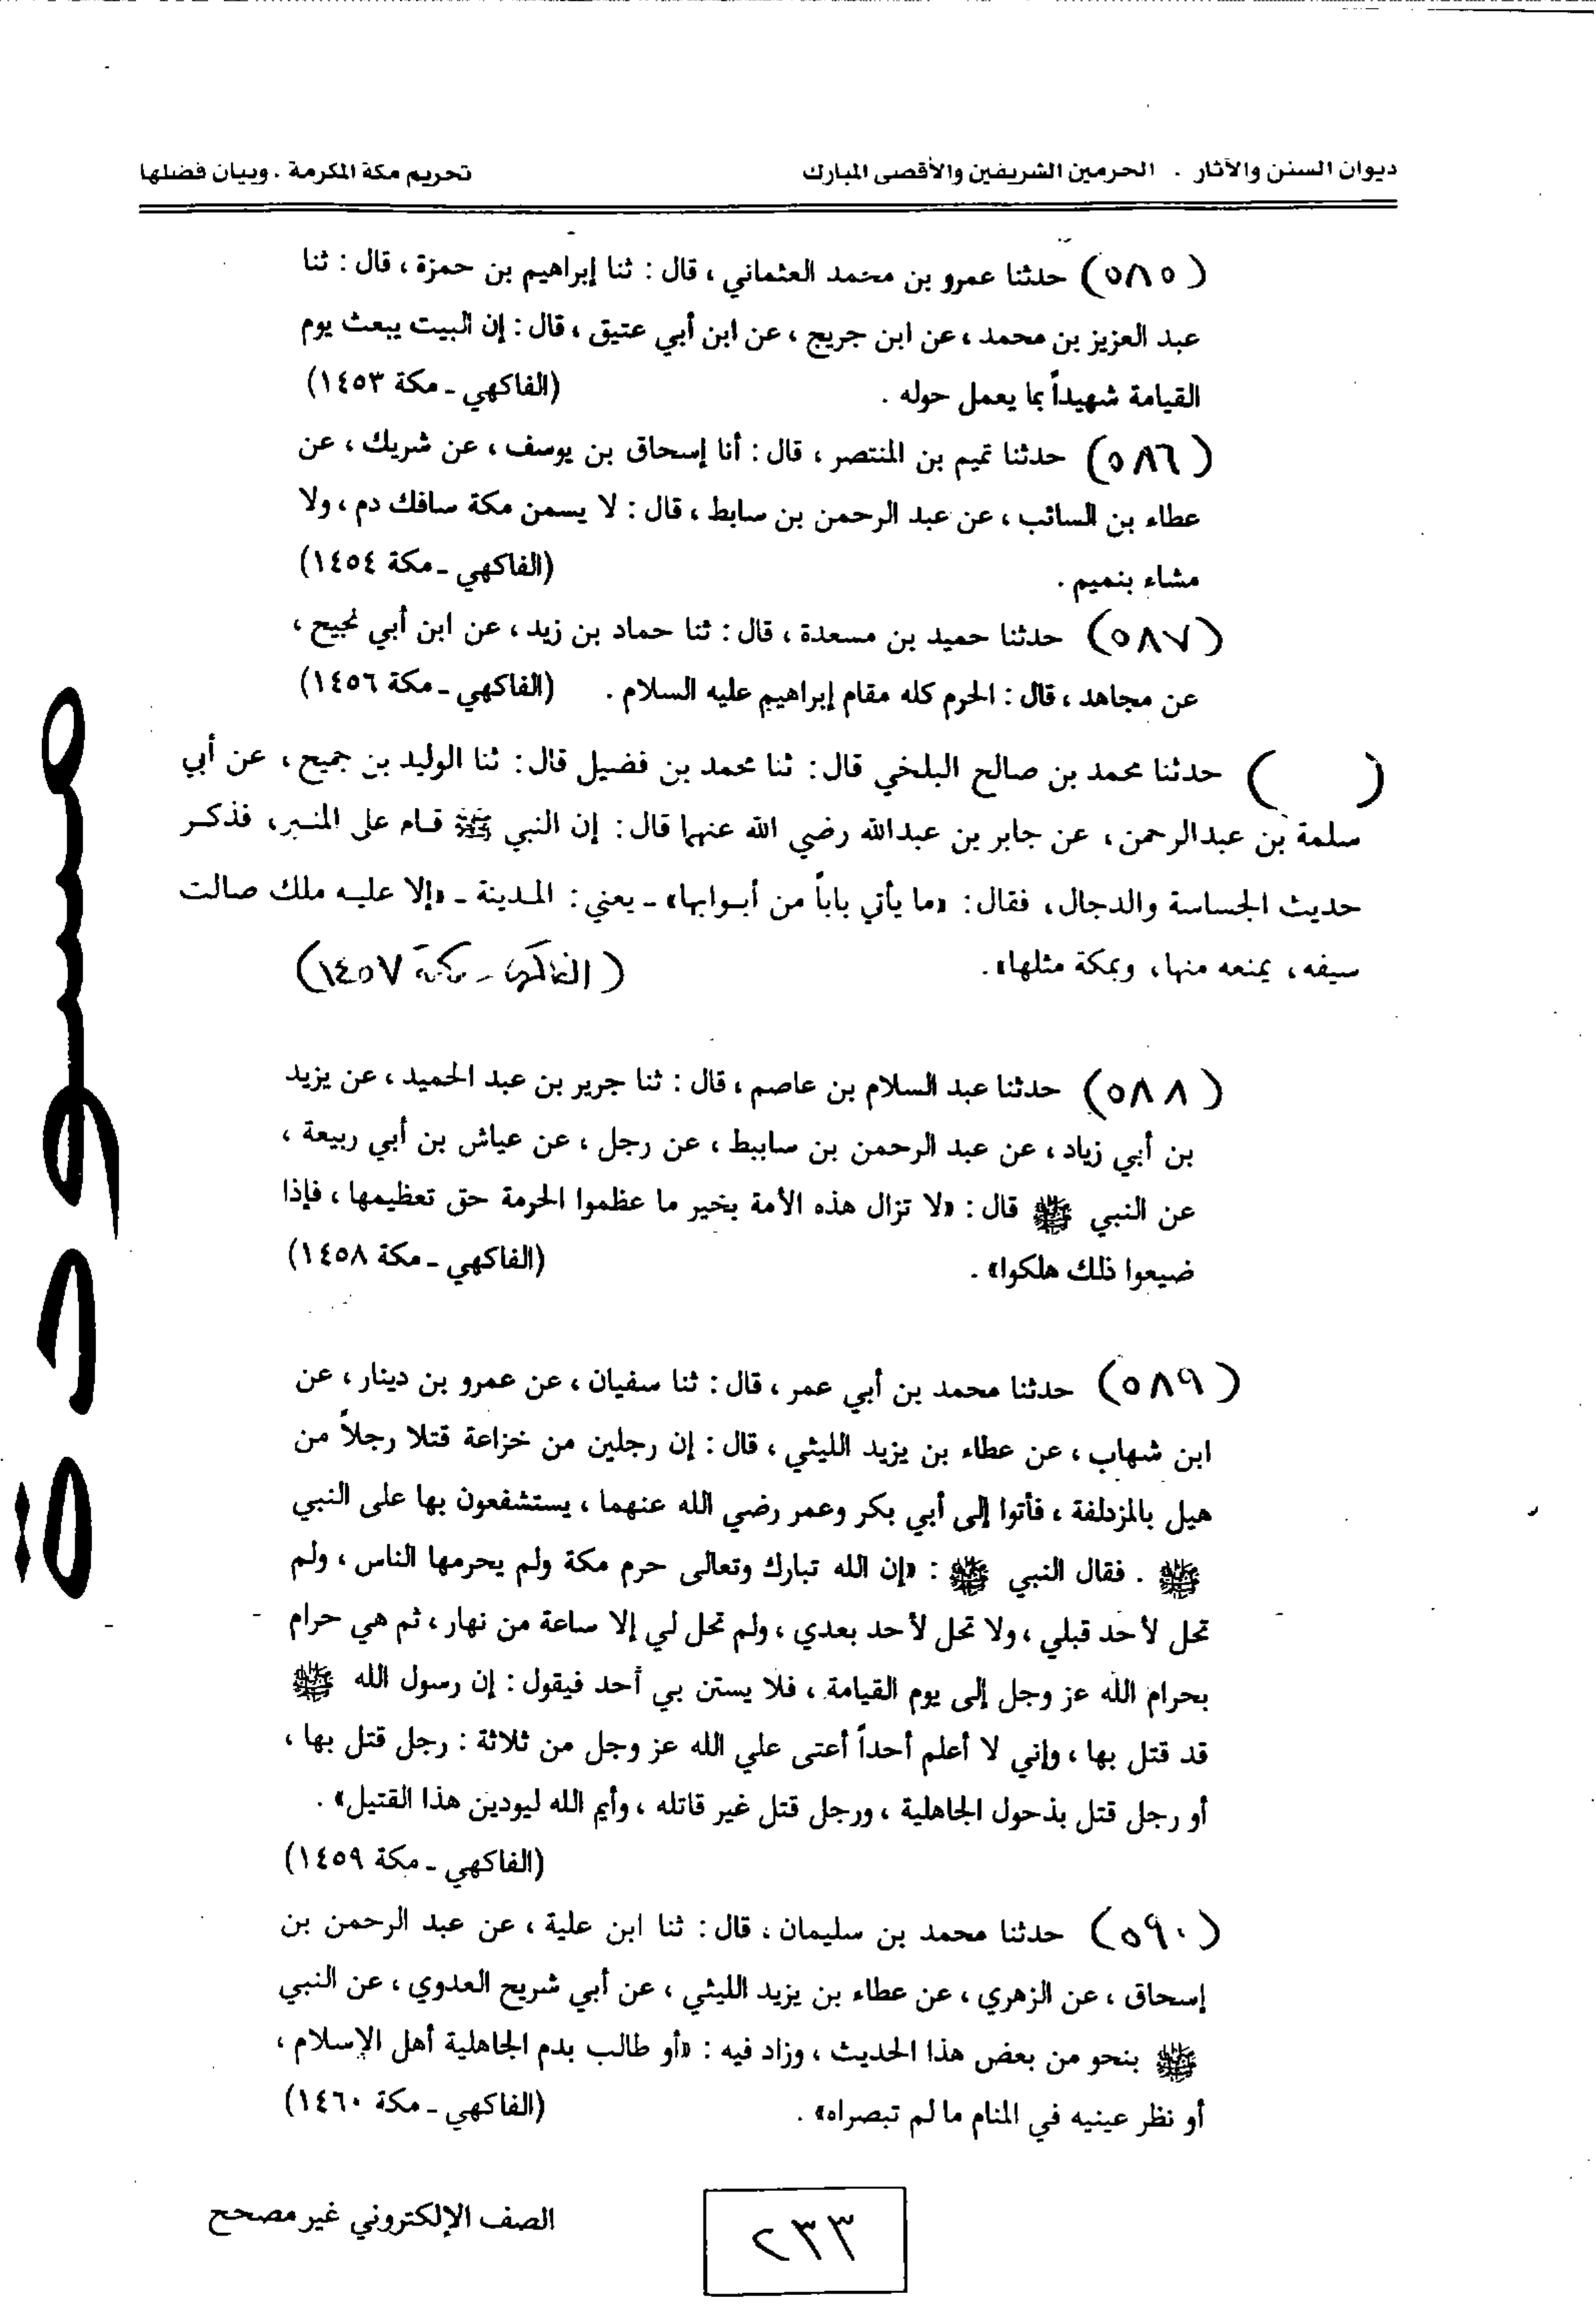 ديوان السنن والآثار . الحرمين الشريفين والأقصى المبارك
تحريم مكة المكرمة . وبيان فضلها
(٥٨٥) حدثنا عمرو بن محمد العثماني ، قال : ثنا إبراهيم بن حمزة ، قال : ثنا
عبد العزيز بن محمد ، عن ابن جريج ، عن ابن أبي عتيق ، قال : إن البيت يبعث يوم
القيامة شهيداً بما يعمل حوله . (الفاكهي ـ مكة ١٤٥٣)
(٥٨٦) حدثنا تميم بن المنتصر ، قال : أنا إسحاق بن يوسف ، عن شريك ، عن
عطاء بن السائب ، عن عبد الرحمن بن سابط ، قال : لا يسمن مكة سافك دم ، ولا
مشاء بنميم . (الفاكهي ـ مكة ١٤٥٤)
(٥٨٧) حدثنا حميد بن مسعدة ، قال : ثنا حماد بن زيد ، عن ابن أبي نجيح ،
عن مجاهد ، قال : الحرم كله مقام إبراهيم عليه السلام . (الفاكهي ـ مكة ١٤٥٦)
( ) حدثنا محمد بن صالح البلخي قال: ثنا محمد بن فضيل قال: ثنا الوليد بن جميح، عن أبي
سلمة بن عبدالرحمن، عن جابر بن عبدالله رضي الله عنهما قال: إن النبي ﷺ قام على المنبر، فذكر
حديث الجساسة والدجال، فقال: «ما يأتي باباً من أبوابها» ـ يعني: المدينة ـ «إلا عليه ملك صالت
سيفه، يمنعه منها، وبمكة مثلها». (الفاكهي ـ مكة ١٤٥٧)
(٥٨٨) حدثنا عبد السلام بن عاصم ، قال : ثنا جرير بن عبد الحميد ، عن يزيد
بن أبي زياد ، عن عبد الرحمن بن ساببط ، عن رجل ، عن عياش بن أبي ربيعة ،
عن النبي ﷺ قال : «لا تزال هذه الأمة بخير ما عظموا الحرمة حق تعظيمها ، فإذا
ضيعوا ذلك هلكوا» . (الفاكهي ـ مكة ١٤٥٨)
(٥٨٩) حدثنا محمد بن أبي عمر ، قال : ثنا سفيان ، عن عمرو بن دينار ، عن
ابن شهاب ، عن عطاء بن يزيد الليثي ، قال : إن رجلين من خزاعة قتلا رجلاً من
هيل بالمزدلفة ، فأتوا إلى أبي بكر وعمر رضي الله عنهما ، يستشفعون بها على النبي
ﷺ . فقال النبي ﷺ : «إن الله تبارك وتعالى حرم مكة ولم يحرمها الناس ، ولم
تحل لأحد قبلي ، ولا تحل لأحد بعدي ، ولم تحل لي إلا ساعة من نهار ، ثم هي حرام
بحرام الله عز وجل إلى يوم القيامة ، فلا يستن بي أحد فيقول : إن رسول الله ﷺ
قد قتل بها ، وإني لا أعلم أحداً أعتى علي الله عز وجل من ثلاثة : رجل قتل بها ،
أو رجل قتل بذحول الجاهلية ، ورجل قتل غير قاتله ، وأيم الله ليودين هذا القتيل» .
(الفاكهي ـ مكة ١٤٥٩)
(٥٩٠) حدثنا محمد بن سليمان ، قال : ثنا ابن علية ، عن عبد الرحمن بن
إسحاق ، عن الزهري ، عن عطاء بن يزيد الليثي ، عن أبي شريح العدوي ، عن النبي
ﷺ بنحو من بعض هذا الحديث ، وزاد فيه : «أو طالب بدم الجاهلية أهل الإسلام ،
أو نظر عينيه في المنام ما لم تبصراه» . (الفاكهي ـ مكة ١٤٦٠)
٢٣٣
الصف الإلكتروني غير مصحح
مسودة